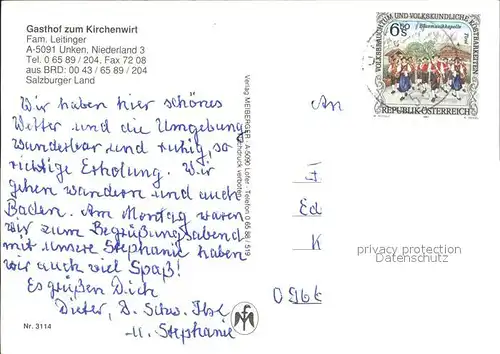 Gasthof zum Kirchenwirt
Fam. Leitinger
A-5091 Unken, Niederland 3
Tel. 0 65 89 / 204, Fax 72 08
aus BRD: 00 43 / 65 89 / 204
Salzburger Land
Wir haben hier schönes
Wetter und die Umgebung
wunderbar und ruhig, so
richtige Erholung. Wir
gehen wandern und auch
Baden. Am Montag waren
wir zum Begrüßungsabend
mit unsere Stephanie haben
wir auch viel Spaß!
Es grüßen Dich
Dieter, D. Schw. Ilse
u. Stephanie
Nr. 3114
Verlag MEIBERGER, A-5090 Lofer - Telefon 0 65 88 / 519
Nachdruck verboten
VOLKSBRAUCHTUM UND VOLKSKUNDLICHE KOSTBARKEITEN
6 50
S
REPUBLIK ÖSTERREICH
An
Ed
K
privacy protection
Datenschutz
M